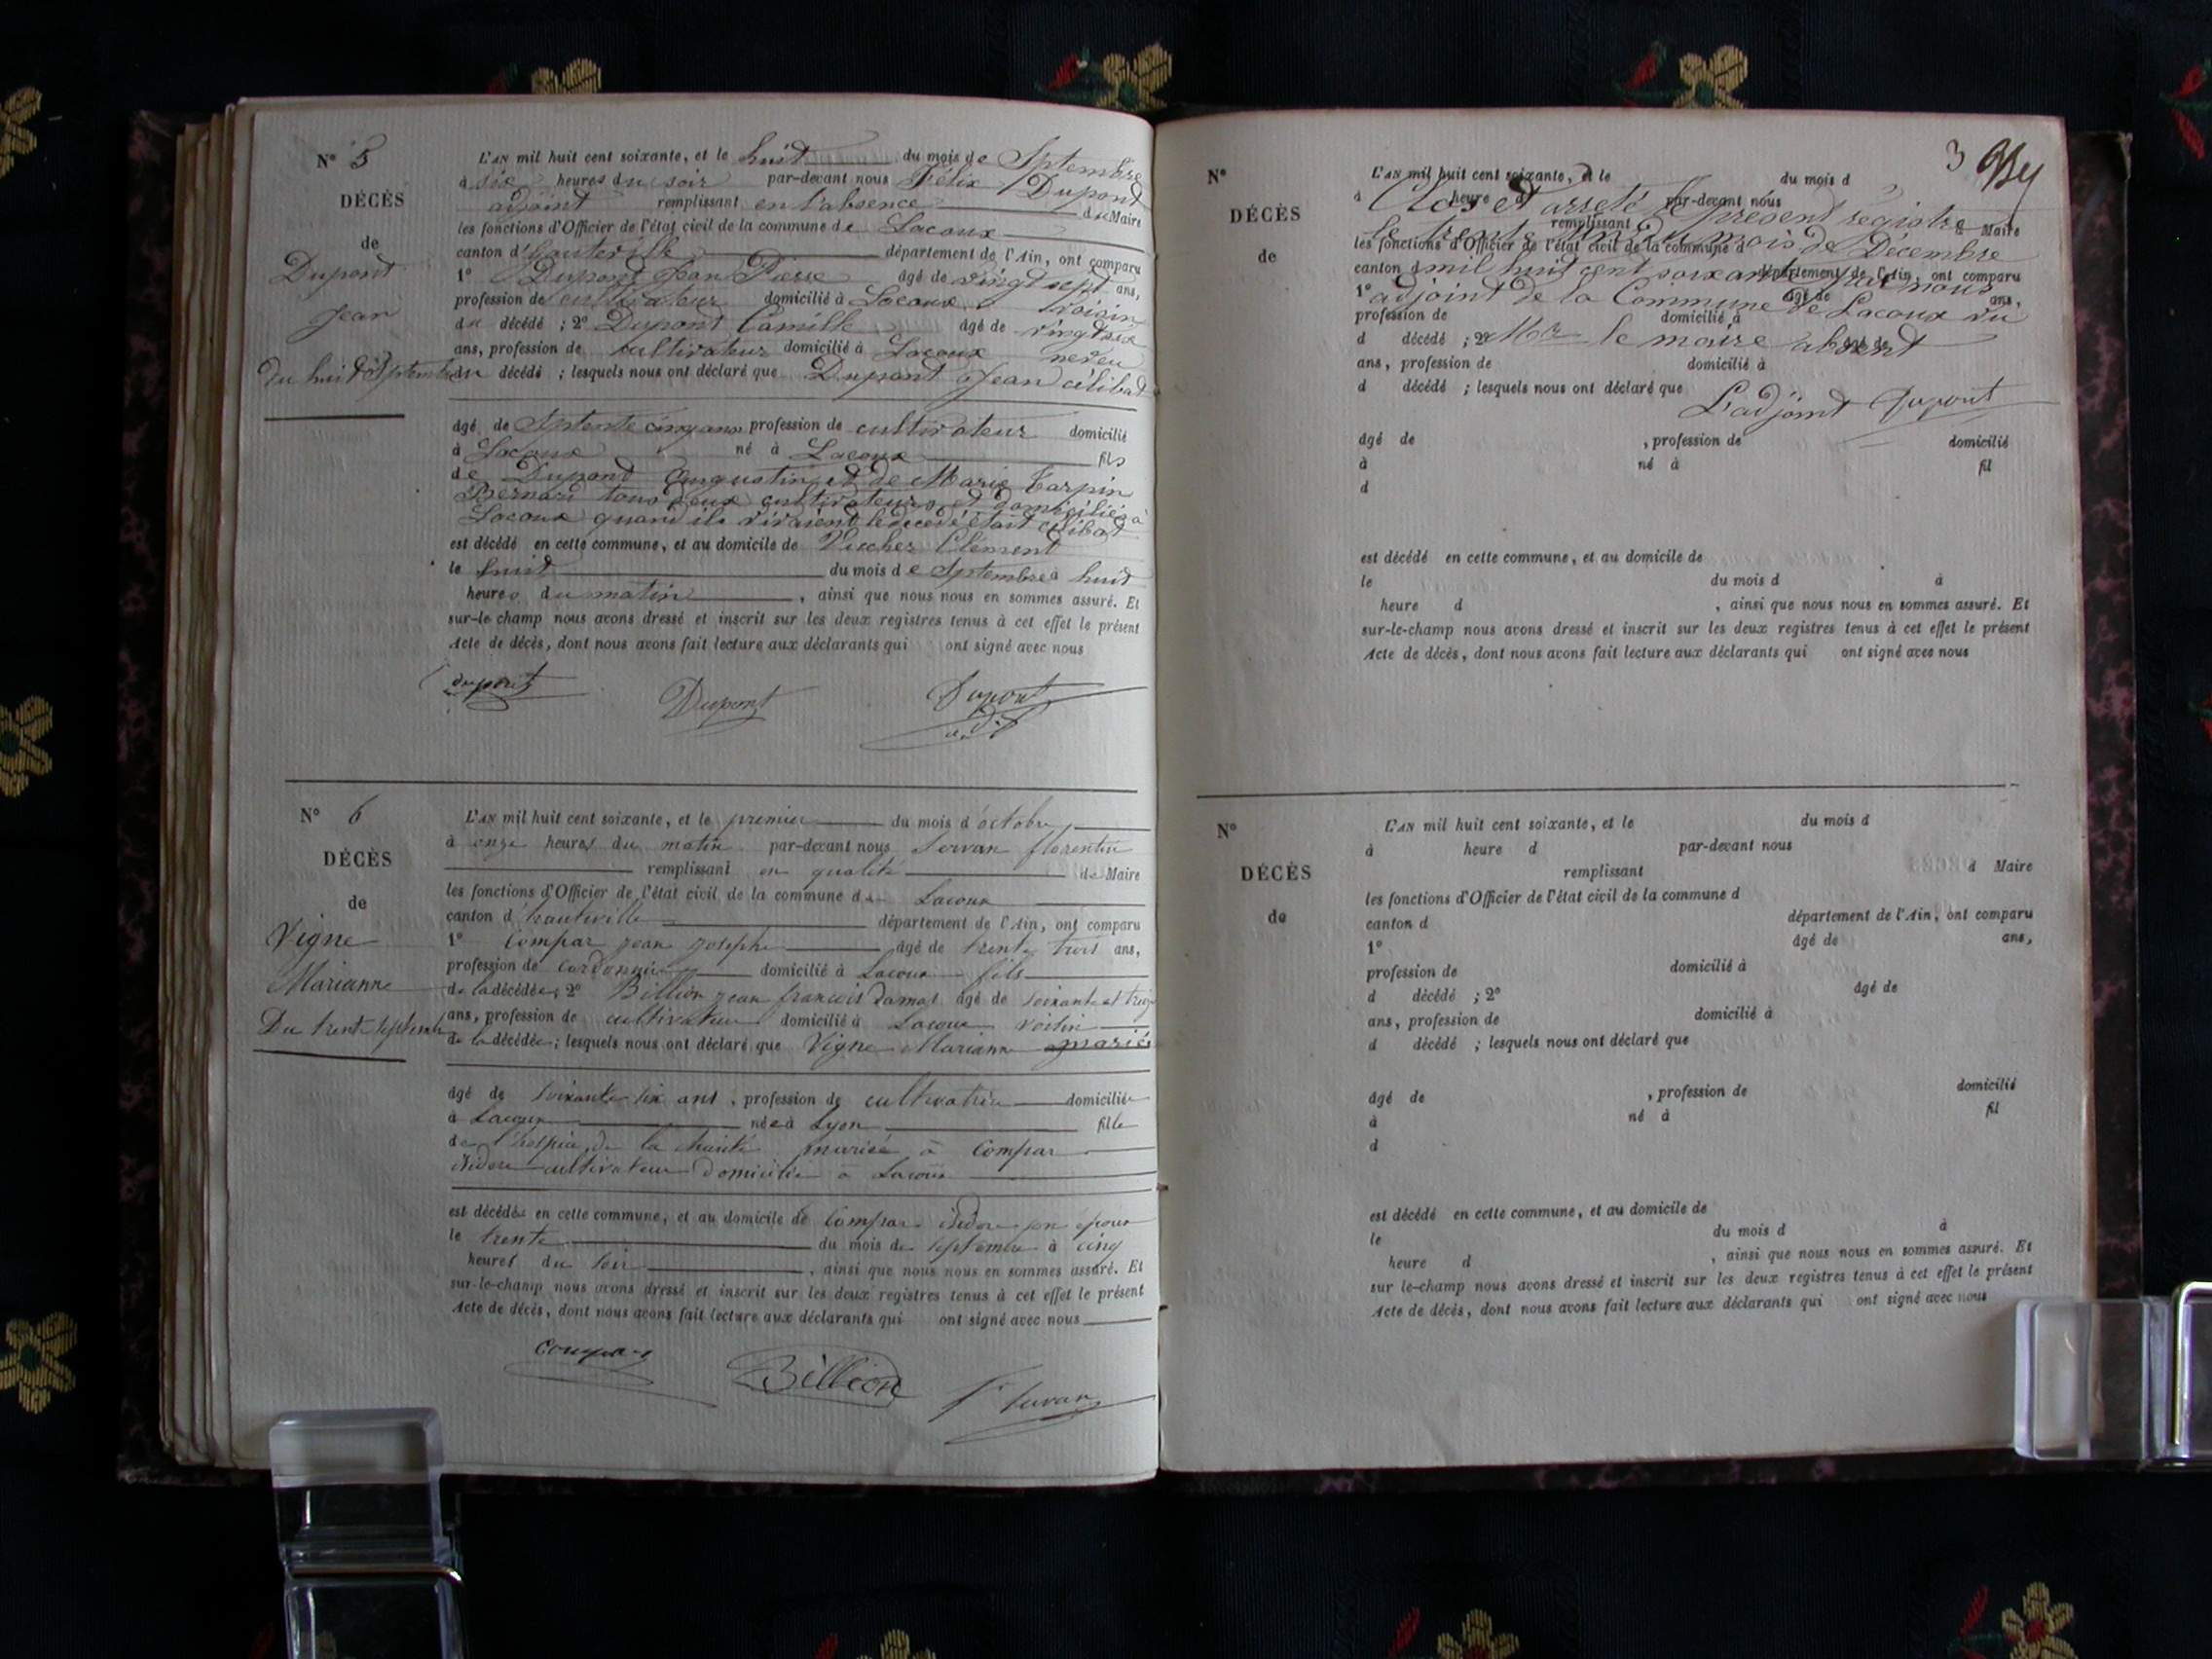 N° 5
DÉCÈS
de
Dupont
Jean
du huit Septembre
L'AN mil huit cent soixante, et le huit du mois de Septembre
à six heures du soir par-devant nous Félix Dupont
adjoint remplissant en l'absence du Maire
les fonctions d'Officier de l'état civil de la commune de Lacoux
canton d'hauteville département de l'Ain, ont comparu
1° Dupond Jean Pierre âgé de vingt sept ans,
profession de cultivateur domicilié à Lacoux voisin
du décédé ; 2° Dupont Camille âgé de vingt six
ans, profession de cultivateur domicilié à Lacoux neveu
du décédé ; lesquels nous ont déclaré que Dupont Jean célibat
âgé de Septente cinq ans profession de cultivateur domicilié
à Lacoux né à Lacoux fils
de Dupond Augustin et de Marie Carpin
Bernard tous deux cultivateurs et domiciliés à
Lacoux quand ils vivaient le décédé était célibat
est décédé en cette commune, et au domicile de Clément
le huit du mois de Septembre à huit
heures du matin , ainsi que nous nous en sommes assuré. Et
sur-le-champ nous avons dressé et inscrit sur les deux registres tenus à cet effet le présent
Acte de décès, dont nous avons fait lecture aux déclarants qui ont signé avec nous
dupont Dupont Dupont
adj
N° 6
DÉCÈS
de
Vigne
Marianne
Du trente septembre
L'AN mil huit cent soixante, et le premier du mois d'octobre
à onze heures du matin par-devant nous Servan florentin
remplissant en qualité de Maire
les fonctions d'Officier de l'état civil de la commune de Lacoux
canton d'hauteville département de l'Ain, ont comparu
1° Compar jean josephe âgé de trente trois ans,
profession de cordonnier domicilié à Lacoux fils
de la décédée ; 2° Billion jean françois Damas âgé de soixante et treize
ans, profession de cultivateur domicilié à Lacoux voisin
de la décédée ; lesquels nous ont déclaré que Vigne Marianne mariée
âgé de soixante six ans , profession de cultivatrice domiciliée
à Lacoux née à Lyon fille
de l'hospice de la charité mariée à Compar
isidore cultivateur domicilié à Lacoux
est décédée en cette commune, et au domicile de Compar isidore son époux
le trente du mois de septembre à cinq
heures du soir , ainsi que nous nous en sommes assuré. Et
sur-le-champ nous avons dressé et inscrit sur les deux registres tenus à cet effet le présent
Acte de décès, dont nous avons fait lecture aux déclarants qui ont signé avec nous
compar Billion Servan
3
N°
DÉCÈS
de
L'AN mil huit cent soixante, et le du mois d
à heure d par-devant nous
Clos et arreté le present registre
remplissant d Maire
le trente un du mois de Décembre
les fonctions d'Officier de l'état civil de la commune d
canton d département de l'Ain, ont comparu
mil huit cent soixante par nous
1° âgé de ans,
adjoint de la Commune de Lacoux vu
profession de domicilié à
d décédé ; 2° âgé de
Mr le maire absent
ans, profession de domicilié à
d décédé ; lesquels nous ont déclaré que
L'adjoint Dupont
âgé de , profession de domicilié
à né à fil
d
est décédé en cette commune, et au domicile de
le du mois d à
heure d , ainsi que nous nous en sommes assuré. Et
sur-le-champ nous avons dressé et inscrit sur les deux registres tenus à cet effet le présent
Acte de décès, dont nous avons fait lecture aux déclarants qui ont signé avec nous
N°
DÉCÈS
de
L'AN mil huit cent soixante, et le du mois d
à heure d par-devant nous
remplissant d Maire
les fonctions d'Officier de l'état civil de la commune d
canton d département de l'Ain, ont comparu
1° âgé de ans,
profession de domicilié à
d décédé ; 2° âgé de
ans, profession de domicilié à
d décédé ; lesquels nous ont déclaré que
âgé de , profession de domicilié
à né à fil
d
est décédé en cette commune, et au domicile de
le du mois d à
heure d , ainsi que nous nous en sommes assuré. Et
sur le-champ nous avons dressé et inscrit sur les deux registres tenus à cet effet le présent
Acte de décès, dont nous avons fait lecture aux déclarants qui ont signé avec nous